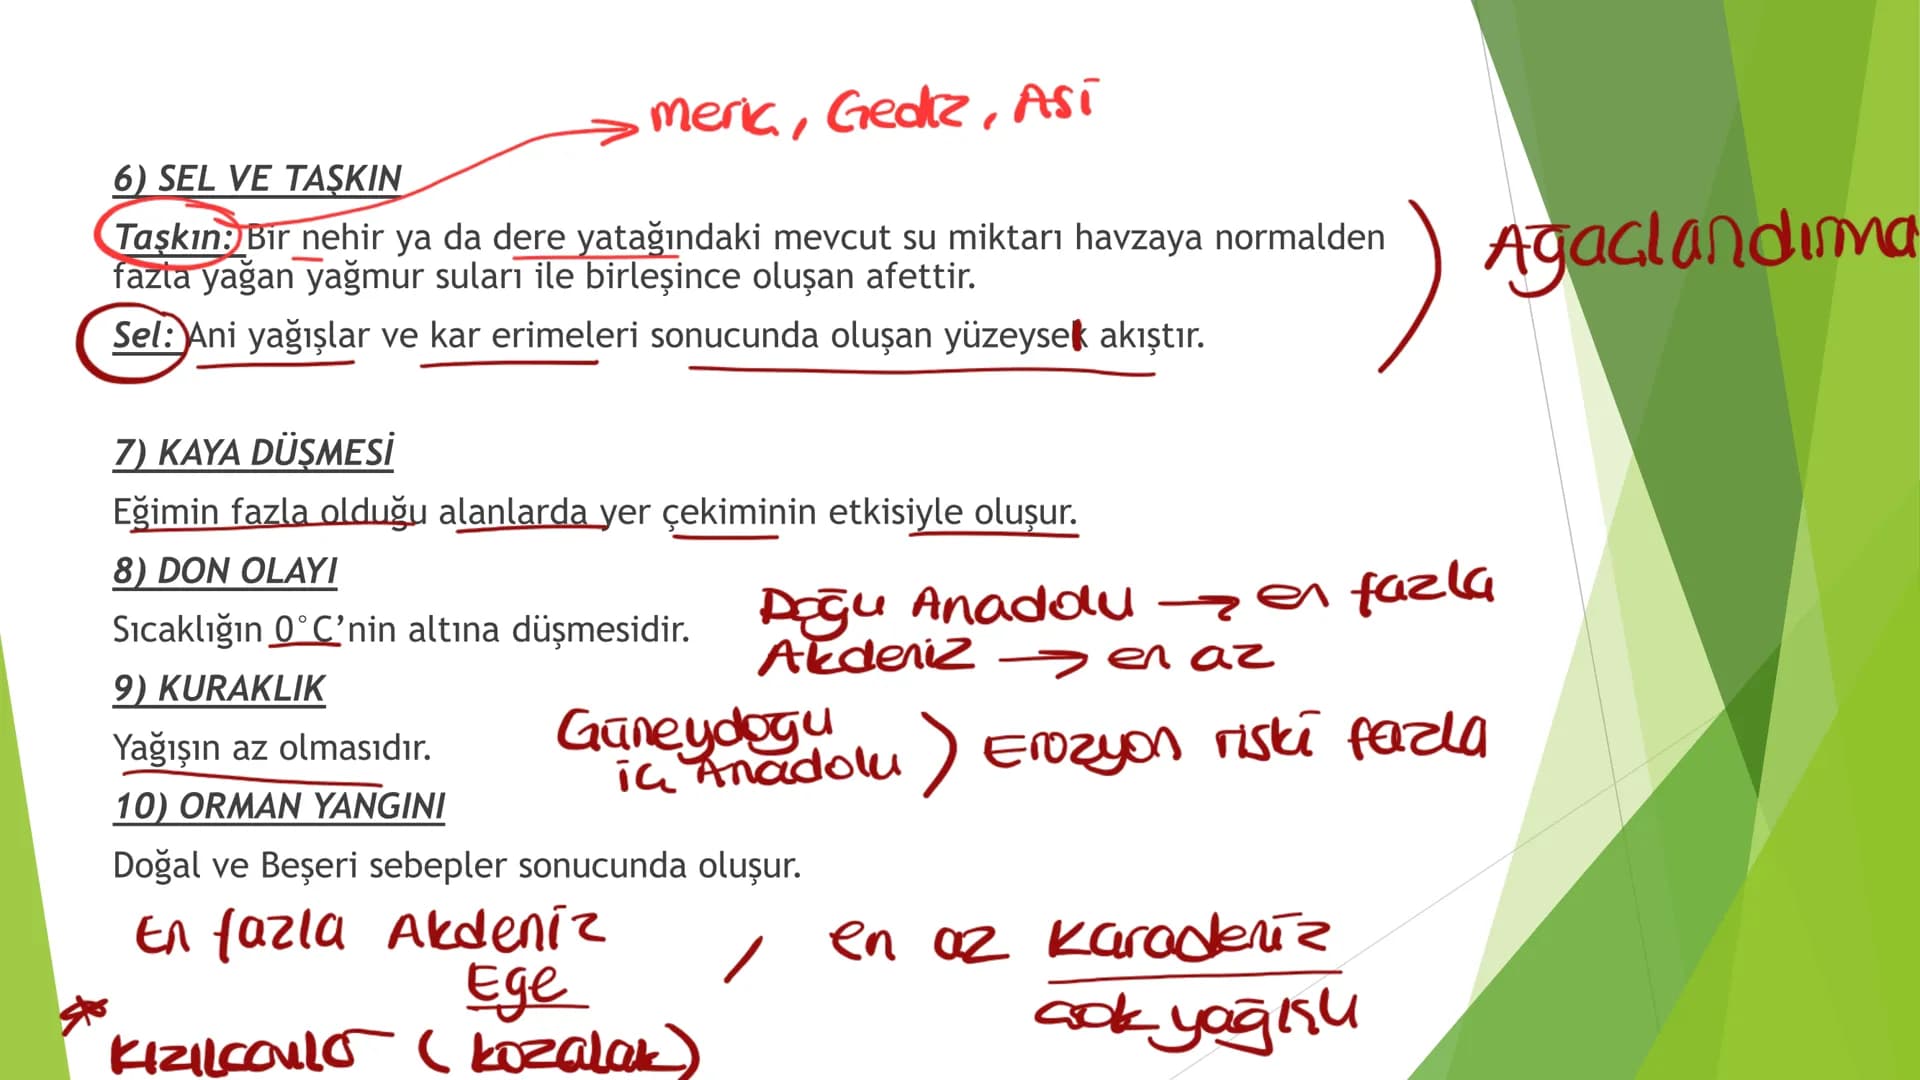 Meriç, Gediz, Asi
6) SEL VE TAŞKIN
Taşkın: Bir nehir ya da dere yatağındaki mevcut su miktarı havzaya normalden
fazla yağan yağmur suları ile birleşince oluşan afettir.
Ağaçlandırma
Sel: Ani yağışlar ve kar erimeleri sonucunda oluşan yüzeysek akıştır.
7) KAYA DÜŞMESİ
Eğimin fazla olduğu alanlarda yer çekiminin etkisiyle oluşur.
8) DON OLAYI
Doğu Anadolu → en fazla
Sıcaklığın 0°C’nin altına düşmesidir.
Akdeniz → en az
9) KURAKLIK
Güneydoğu
Yağışın az olmasıdır.
iç Anadolu ) Erozyon riski fazla
10) ORMAN YANGINI
Doğal ve Beşeri sebepler sonucunda oluşur.
En fazla Akdeniz / en az Karadeniz
Ege
çok yağışlı
* Kızılçamlar (kozalak)